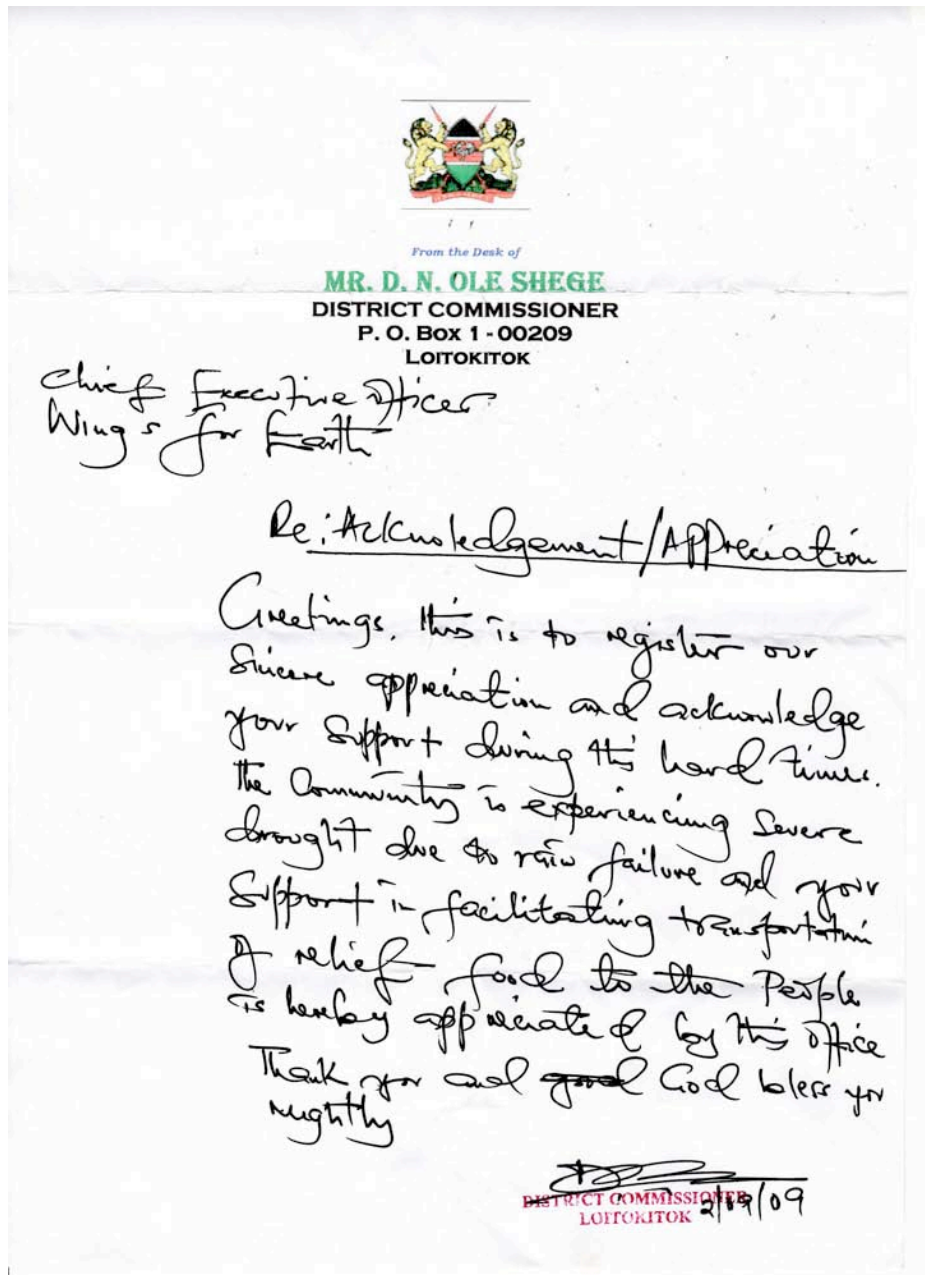 From the Desk of
MR. D. N. OLE SHEGE
DISTRICT COMMISSIONER
P. O. Box 1 - 00209
LOITOKITOK
Chief Executive Officer
Wings for Earth
Re: Acknowledgement/Appreciation
Greetings, this is to register our
Sincere appreciation and acknowledge
your Support during this hard times.
The Community is experiencing Severe
drought due to rain failure and your
Support in facilitating transportation
of relief food to the People
is hereby appreciated by this office
Thank you and good God bless you
mightly
DISTRICT COMMISSIONER
LOITOKITOK 2/09/09